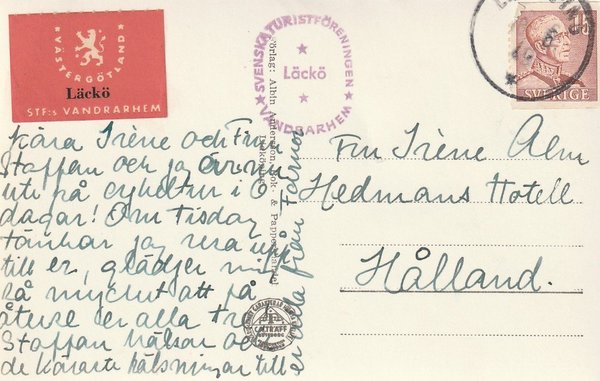 VÄSTERGÖTLAND
Läckö
STF:s VANDRARHEM
SVENSKA TURISTFÖRENINGEN
Läckö
VANDRARHEM
15
SVERIGE
Kära Irène och Finn
Staffan och jag är nu
ute på cykeltur i 8
dagar! Om Tisdag
tänker jag resa upp
till er, glädjer mig
så mycket att få
återse er alla tre
Staffan hälsar och
de käraste hälsningar till
er alla från Farmor
Förlag: Albin Anderssons Bok- & Pappershandel
CALTRAFF
Fru Irène Alm
Hedmans Hotell
Hålland.